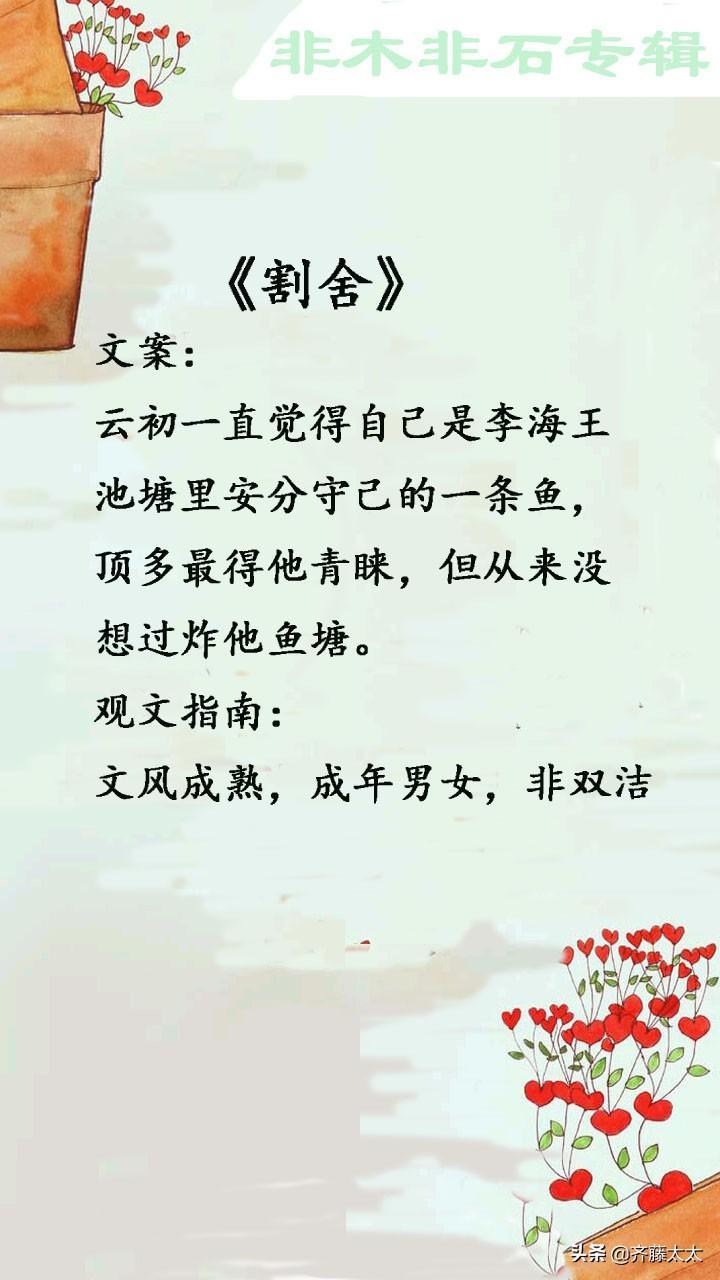 非木非石专辑
《割舍》
文案：
云初一直觉得自己是李海王
池塘里安分守己的一条鱼，
顶多最得他青睐，但从来没
想过炸他鱼塘。
观文指南：
文风成熟，成年男女，非双洁
头条 @齐藤太太